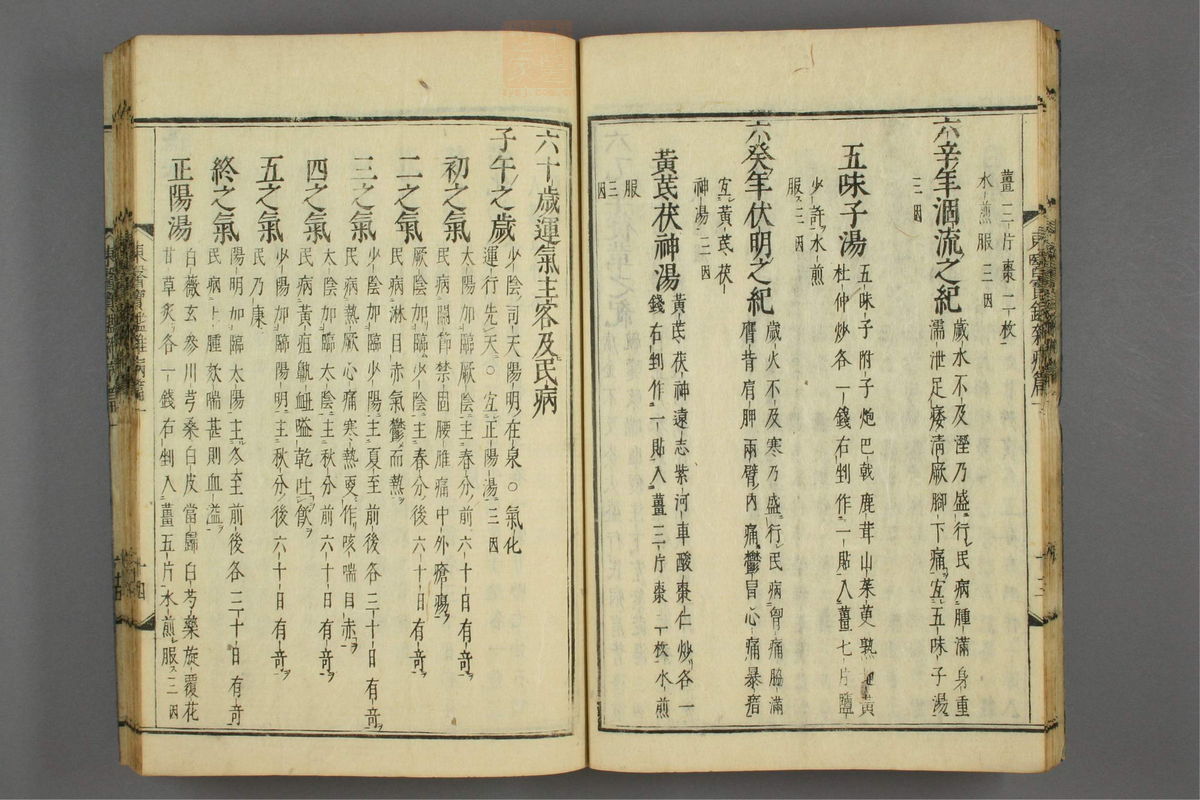 薑三片棗二枚
水煎服三因
六辛年涸流之紀
歲水不及溼乃盛行民病腫滿身重
濡泄足痿淸厥脚下痛宜五味子湯
三因
五味子湯
五味子附子炮巴戟鹿茸山茱萸熟地黃
杜仲炒各一錢右剉作一貼入薑七片鹽
少許水煎
服三因
六癸年伏明之紀
歲火不及寒乃盛行民病胷痛脇滿
膺背肩胛兩臂內痛鬱冒心痛暴瘖
宜黃芪茯
神湯三因
黃芪茯神湯
黃芪茯神遠志紫河車酸棗仁炒各一
錢右剉作一貼入薑三片棗一枚水煎
服
三
因
六十歲運氣主客及民病
子午之歲
少陰司天陽明在泉○氣化
運行先天○宜正陽湯三因
初之氣
太陽加臨厥陰主春分前六十日有奇
民病關節禁固腰脽痛中外瘡瘍
二之氣
厥陰加臨少陰主春分後六十日有奇
民病淋目赤氣鬱而熱
三之氣
少陰加臨少陽主夏至前後各三十日有奇
民病熱厥心痛寒熱更作咳喘目赤
四之氣
太陰加臨太陰主秋分前六十日有奇
民病黃疸鼽衄嗌乾吐飮
五之氣
少陽加臨陽明主秋分後六十日有奇
民乃康
終之氣
陽明加臨太陽主冬至前後各三十日有奇
民病上腫欬喘甚則血溢
正陽湯
白薇玄參川芎桑白皮當歸白芍藥旋覆花
甘草炙各一錢右剉入薑五片水煎服三因
東醫寶鑑雜病篇一
十四